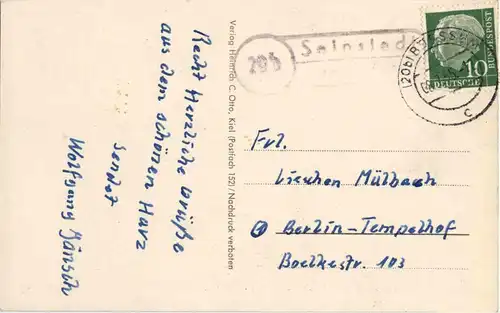 Recht Herzliche Grüße
aus dem schönen Harz
sendet
Wolfgang Jänsch
Verlag Heinrich C. Otto, Kiel (Postfach 152) / Nachdruck verboten
20b
DEUTSCHE
BUNDESPOST
10
(20b)
c
Frl.
Lieschen Mülbach
Berlin-Tempelhof
Boelkestr. 103